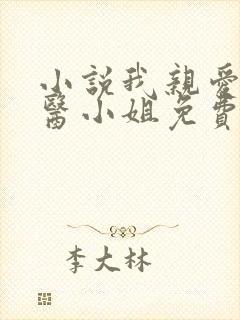 小説我親愛
醫小姐免費
李大林